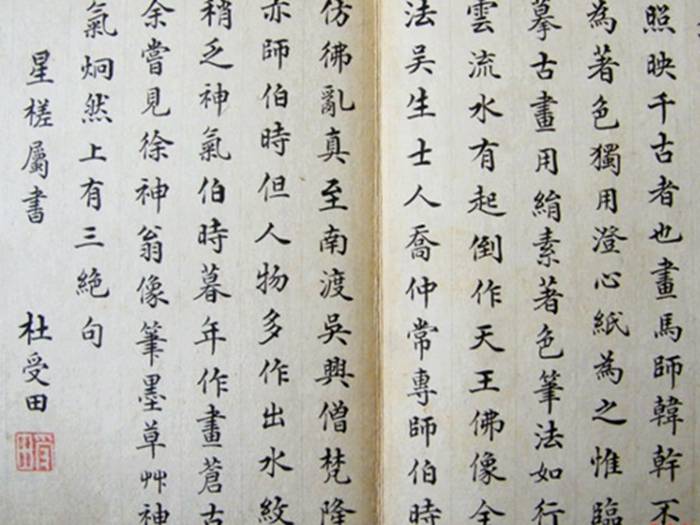 照映千古者也畫馬師韓幹不
為著色獨用澄心紙為之惟臨
摹古畫用絹素著色筆法如行
雲流水有起倒作天王佛像全
法吳生士人喬仲常專師伯時
仿彿亂真至南渡吳興僧梵隆
亦師伯時但人物多作出水紋
稍乏神氣伯時暮年作畫蒼古
余嘗見徐神翁像筆墨草艸神
氣炯然上有三絕句
星槎屬書
杜受田